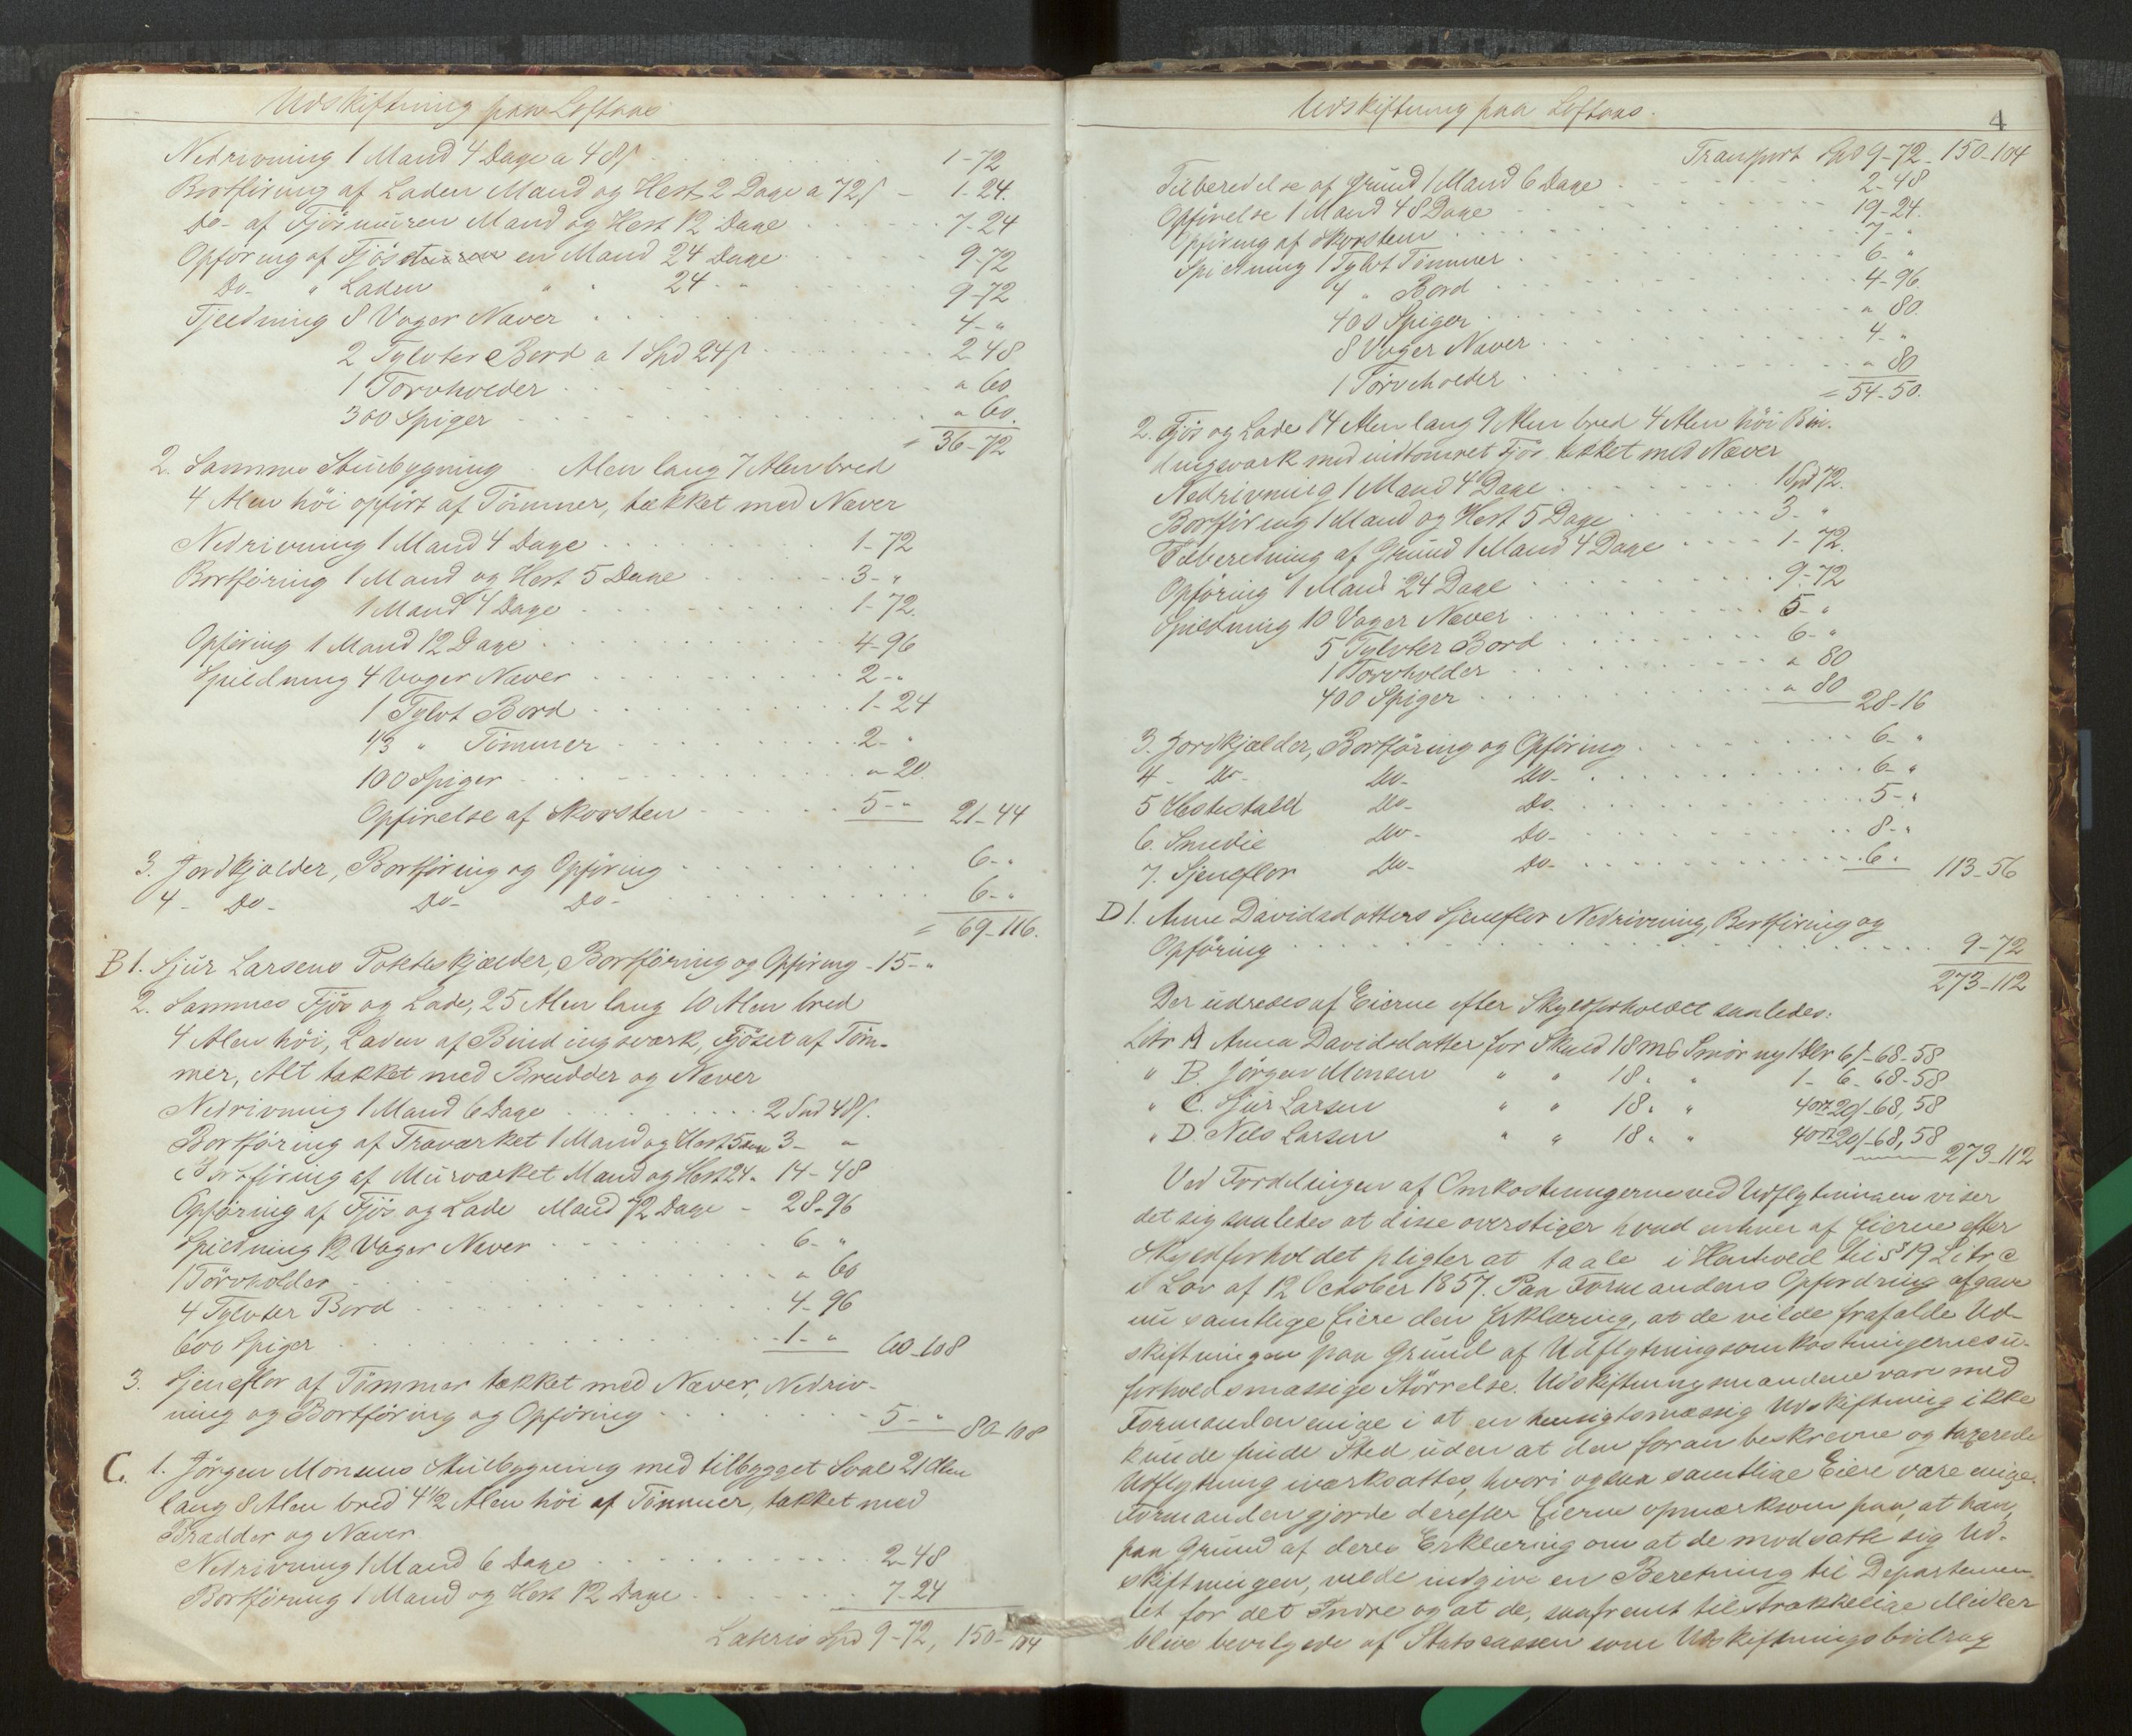 Udskiftning paa Loftaas
Nedrivning 1 Mand 4 Dage a 48 ſ 1-72
Bortföring af Laden Mand og Hest 2 Dage a 72 ſ - 1-24.
Do- af Fjösmuren Mand og Hest 12 Dage 7-24
Opföring af Fjös en Mand 24 Dage 9-72
Do- " Laden " " 24 - " 9-72
Tjeldning 8 Voger Næver 4- "
2 Tylvter Bord a 1 Spd 24 ſ 2-48
1 Torvholder " 60
300 Spiger " 60.
= 36-72
2. Sammes Stuebygning . Alen lang 7 Alen bred
4 Alen höi opfört af Tömmer, tækket med Næver
Nedrivning 1 Mand 4 Dage 1-72
Bortföring 1 Mand og Hest 5 Dage 3- "
1 Mand 4 Dage 1-72.
Opföring 1 Mand 12 Dage 4-96
Spildning 4 Voger Næver 2- "
1 Tylvt Bord 1-24
1/3 " Tömmer 2- "
100 Spiger " 20.
Opförelse af Skorsten 5- " 21-44
3. Jordkjælder, Bortföring og Opföring 6- "
4- Do- Do- Do- 6- "
= 69-116.
B 1. Sjur Larsens Poteteskjælder, Bortföring og Opföring - 15- "
2. Sammes Fjös og Lade, 25 Alen lang 10 Alen bred
4 Alen höi, Laden af Bindingsværk, Fjöset af Töm-
mer, Alt tækket med Brædder og Næver
Nedrivning 1 Mand 6 Dage 2 Spd 48 ſ.
Bortföring af Træværket 1 Mand og Hest 5 Dage 3- "
Bortföring af Murværket Mand og Hest 24 " 14-48
Opföring af Fjös og Lade Mand 72 Dage - 28-96
Spildning 12 Voger Næver 6- "
1 Törvholder " 60
4 Tylvter Bord 4-96
600 Spiger 1- " 60-108
3. Sjeneflor af Tömmer tækket med Næver, Nedriv-
ning og Bortföring og Opföring 5- " 80-108
C. 1. Jörgen Monsens Stuebygning med tilbygget Sval 21 Alen
lang 8 Alen bred 4 1/2 Alen höi af Tömmer, tækket med
Brædder og Næver
Nedrivning 1 Mand 6 Dage 2-48
Bortföring 1 Mand og Hest 12 Dage 7-24
Lateris Spd 9-72, 150-104
Udskiftning paa Loftaas.
4
Transport Spd 9-72 - 150-104
Tilberedelse af Grund 1 Mand 6 Dage 2-48
Opförelse 1 Mand 48 Dage 19-24.
Opföring af Skorsten 7- "
Spildning 1 Tylvt Tömmer 6- "
4 " Bord 4-96.
400 Spiger " 80.
8 Voger Næver 4- "
1 Törveholder " 80
= 54-50.
2. Fjös og Lade 14 Alen lang 9 Alen bred 4 Alen höi Bin-
dingsværk med indtömret Fjös tækket med Næver
Nedrivning 1 Mand 4 Dage 1 Spd 72.
Bortföring 1 Mand og Hest 5 Dage 3- "
Tilberedning af Grund 1 Mand 4 Dage 1-72.
Opföring 1 Mand 24 Dage 9-72
Spildning 10 Voger Næver 5- "
5 Tylvter Bord 6- "
1 Torvholder " 80
400 Spiger " 80 28-16
3. Jordkjælder, Bortföring og Opföring 6- "
4- Do- Do- Do- 6- "
5 Hestestald Do- Do- 5- "
6. Smedie Do- Do- 8- "
7. Sjeneflor Do- Do- 6- " 113-56
D 1. Anne Davidsdatters Sjeneflor Nedrivning, Bortföring og
Opföring 9-72
273-112
Der udredes af Eierne efter Skyldforholdet saaledes:
Litr A Anna Davidsdatter for Skyld 18 mS Smör ny 1 Dlr 6 ſ-68-58
" B. Jörgen Monsen " " 18 " " 1- 6-68-58
" C. Sjur Larsen " " 18 " " 4 ort 20 ſ-68,58
" D. Nils Larsen " " 18 " " 4 ort 20 ſ-68,58
273-112
Ved Fordelingen af Omkostningerne ved Udflytningen viser
det sig saaledes at disse overstiger hvad enhver af Eierne efter
Skyldforholdet pligter at taale i Henhold til § 19 Litr c
i Lov af 12 October 1857. Paa Formandens Opfordring afgave
nu samtlige Eiere den Erklæring, at de vilde frafalde Ud-
skiftningen paa Grund af Udflytningsomkostningernes u-
forholdsmæssige Störrelse. Udskiftningsmændene vare med
Formanden enige i at en hensigtsmæssig Udskiftning ikke
kunde finde Sted uden at den foran beskrevne og taxerede
Udflytning iværksattes, hvori ogsaa samtlige Eiere vare enige.
Formanden gjorde derefter Eierne opmærksom paa, at han,
paa Grund af deres Erklæring om at de modsatte sig Ud-
skiftningen, vilde indgive en Beretning til Departemen-
tet for det Indre og at de, saafremt tilstrækkelige Midler
blive bevilgede af Statscassen som Udskiftningsbidrag